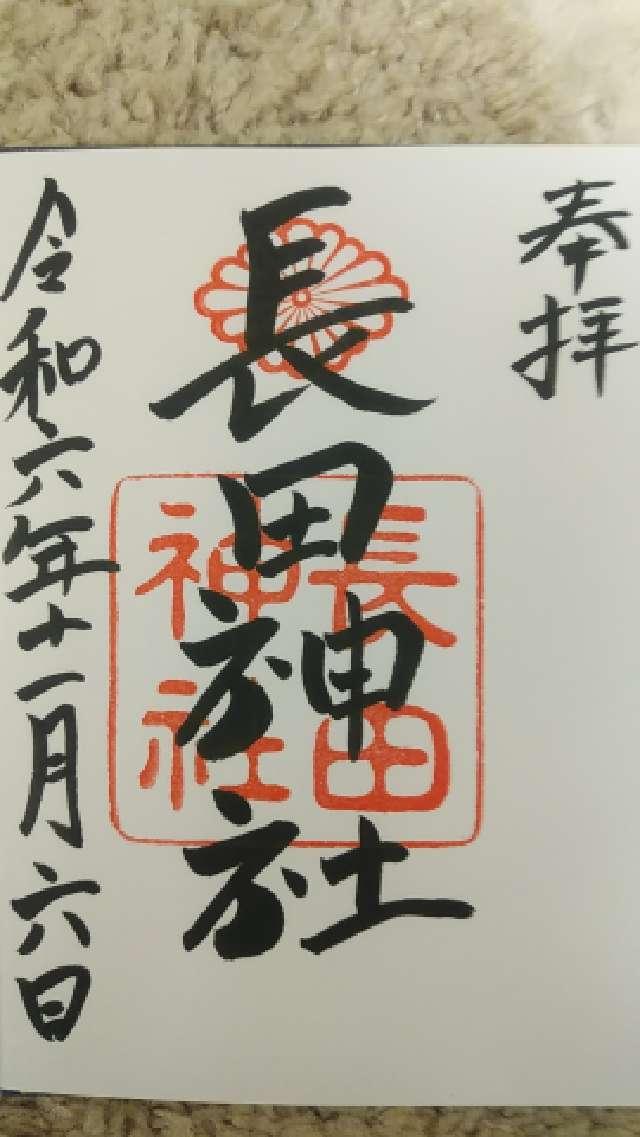 奉拝
長田神社
長田
神社
令和六年十一月六日